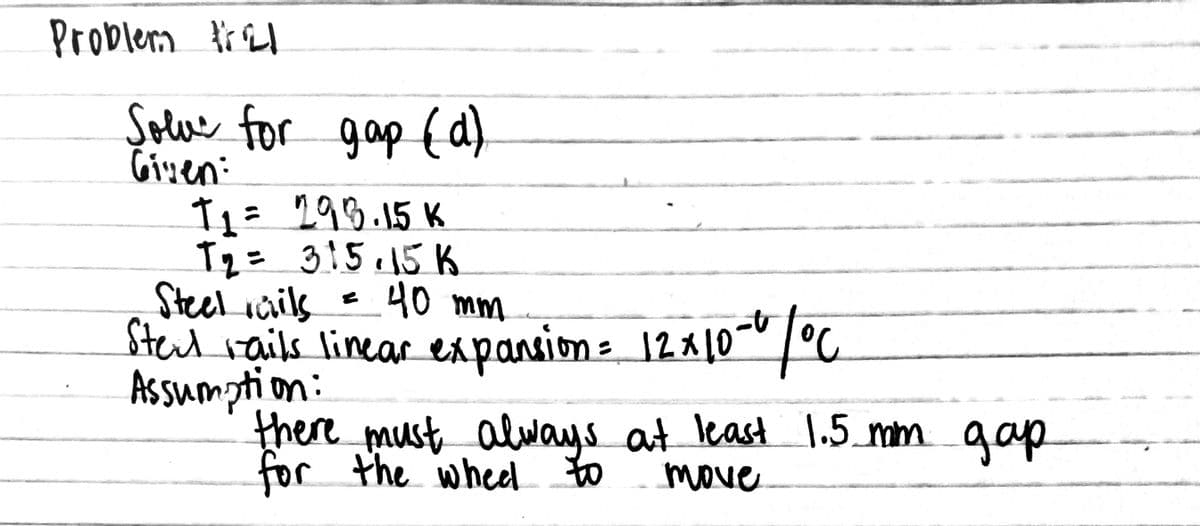 Problem #21
Solve for gap (d)
Given:
T1 = 298.15 K
T2 = 315.15 K
Steel rails = 40 mm
Steel rails linear expansion = 12x10-6/°C
Assumption:
there must always at least 1.5 mm gap
for the wheel to move